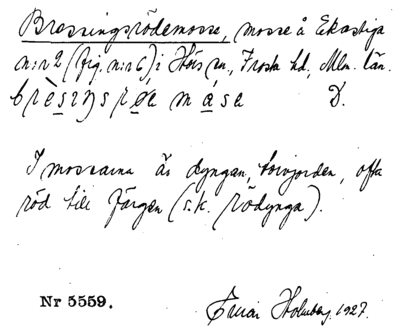 Bressingsrödemosse, mosse å Ekastiga
n:r 2 (fig. n:r 6) i Hörs sn., Frosta hd., Mlm. län.
brèsıŋsrø̀e måsa D.
I mossarna är dyngan, torvjorden, ofta
röd till färgen (s.k. rödynga).
Nr 5559.
Einar Holmberg. 1927.